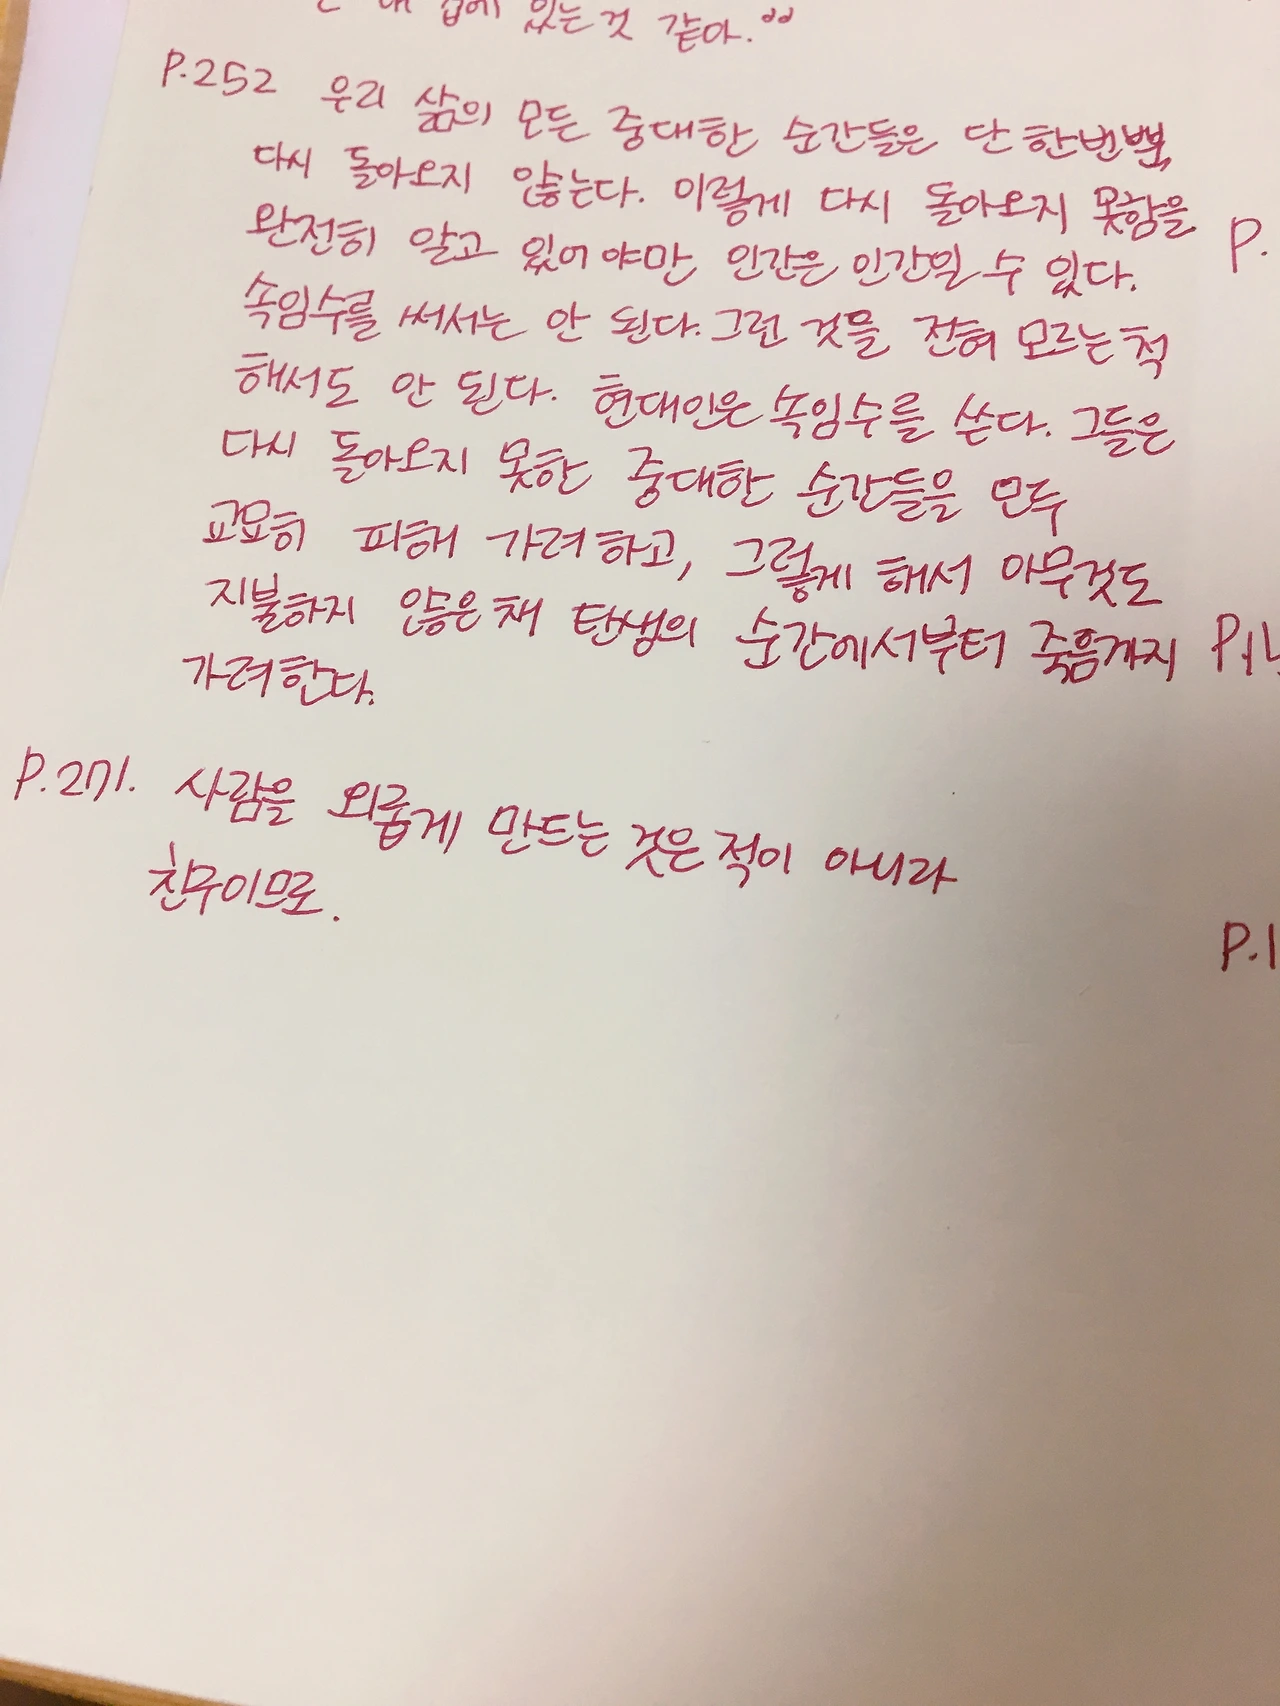 집에 있는 것 같아.”
P.252 우리 삶의 모든 중대한 순간들은 단 한번뿐,
다시 돌아오지 않는다. 이렇게 다시 돌아오지 못함을
완전히 알고 있어야만 인간은 인간일 수 있다.
속임수를 써서는 안 된다. 그런 것을 전혀 모르는 척
해서도 안 된다. 현대인은 속임수를 쓴다. 그들은
다시 돌아오지 못한 중대한 순간들을 모두
교묘히 피해 가려 하고, 그렇게 해서 아무것도
지불하지 않은 채 탄생의 순간에서부터 죽음까지
가려한다.
P.271. 사람을 외롭게 만드는 것은 적이 아니라
친구이므로.
P.
P.1
P.1